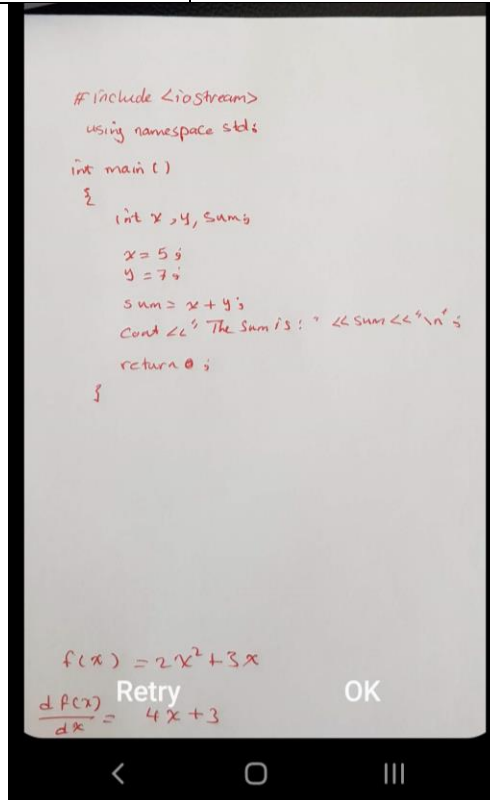 #include <iostream>
using namespace std;
int main ()
{
int x, y, sum;
x = 5;
y = 7;
sum = x + y;
cout << "The sum is: " << sum << "\n";
return 0;
}
f(x) = 2x² + 3x
Retry OK
df(x)/dx = 4x + 3